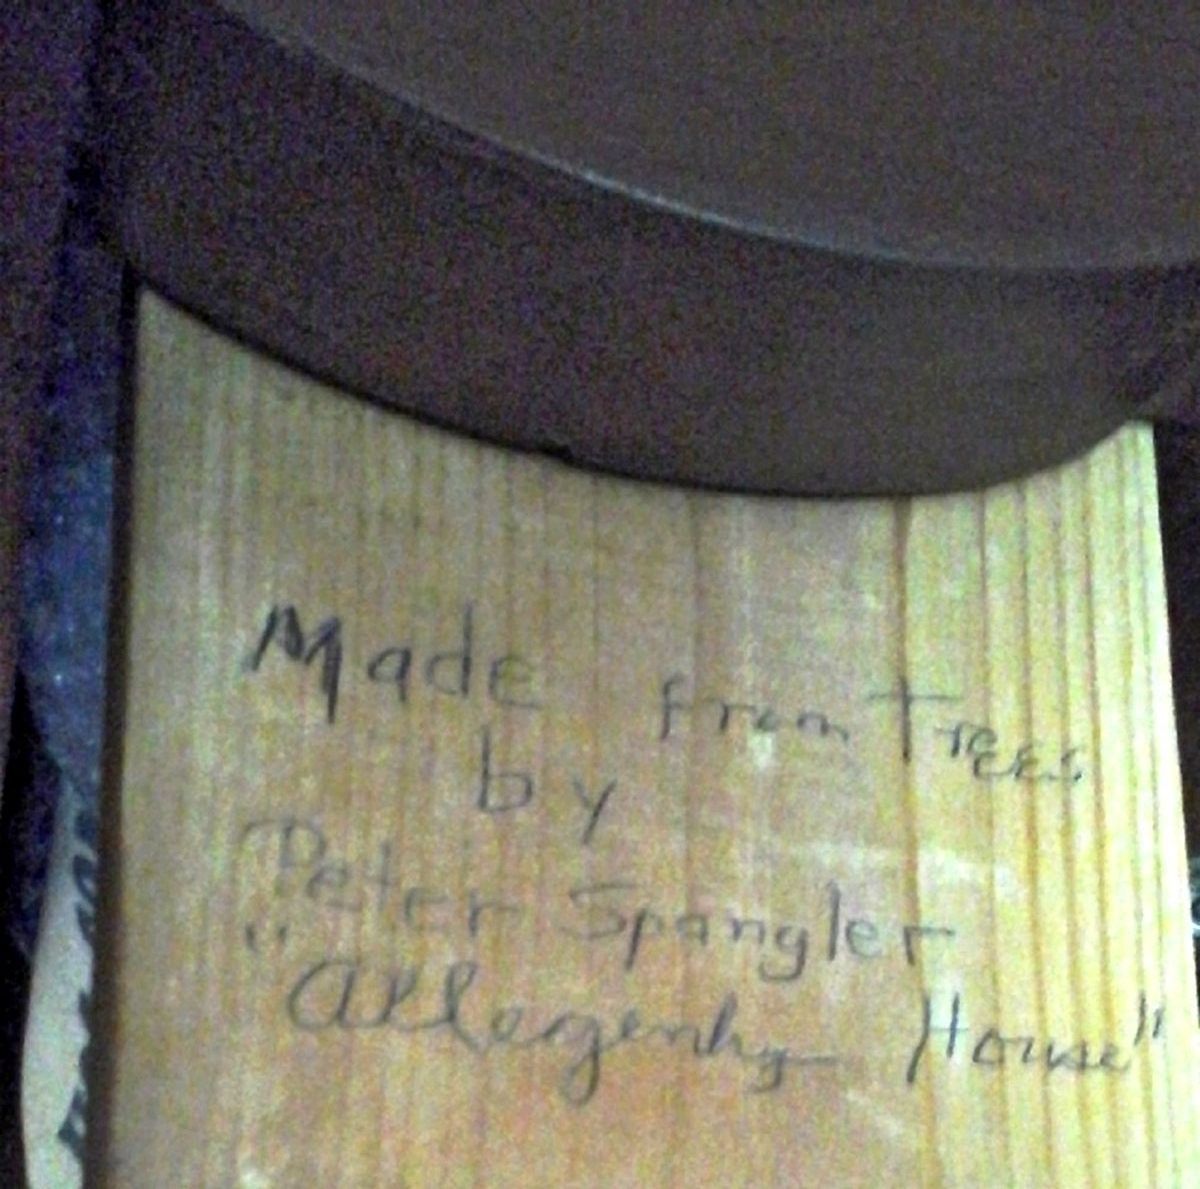 Made from Trees
by
Peter Spangler
"Allegenhy House"